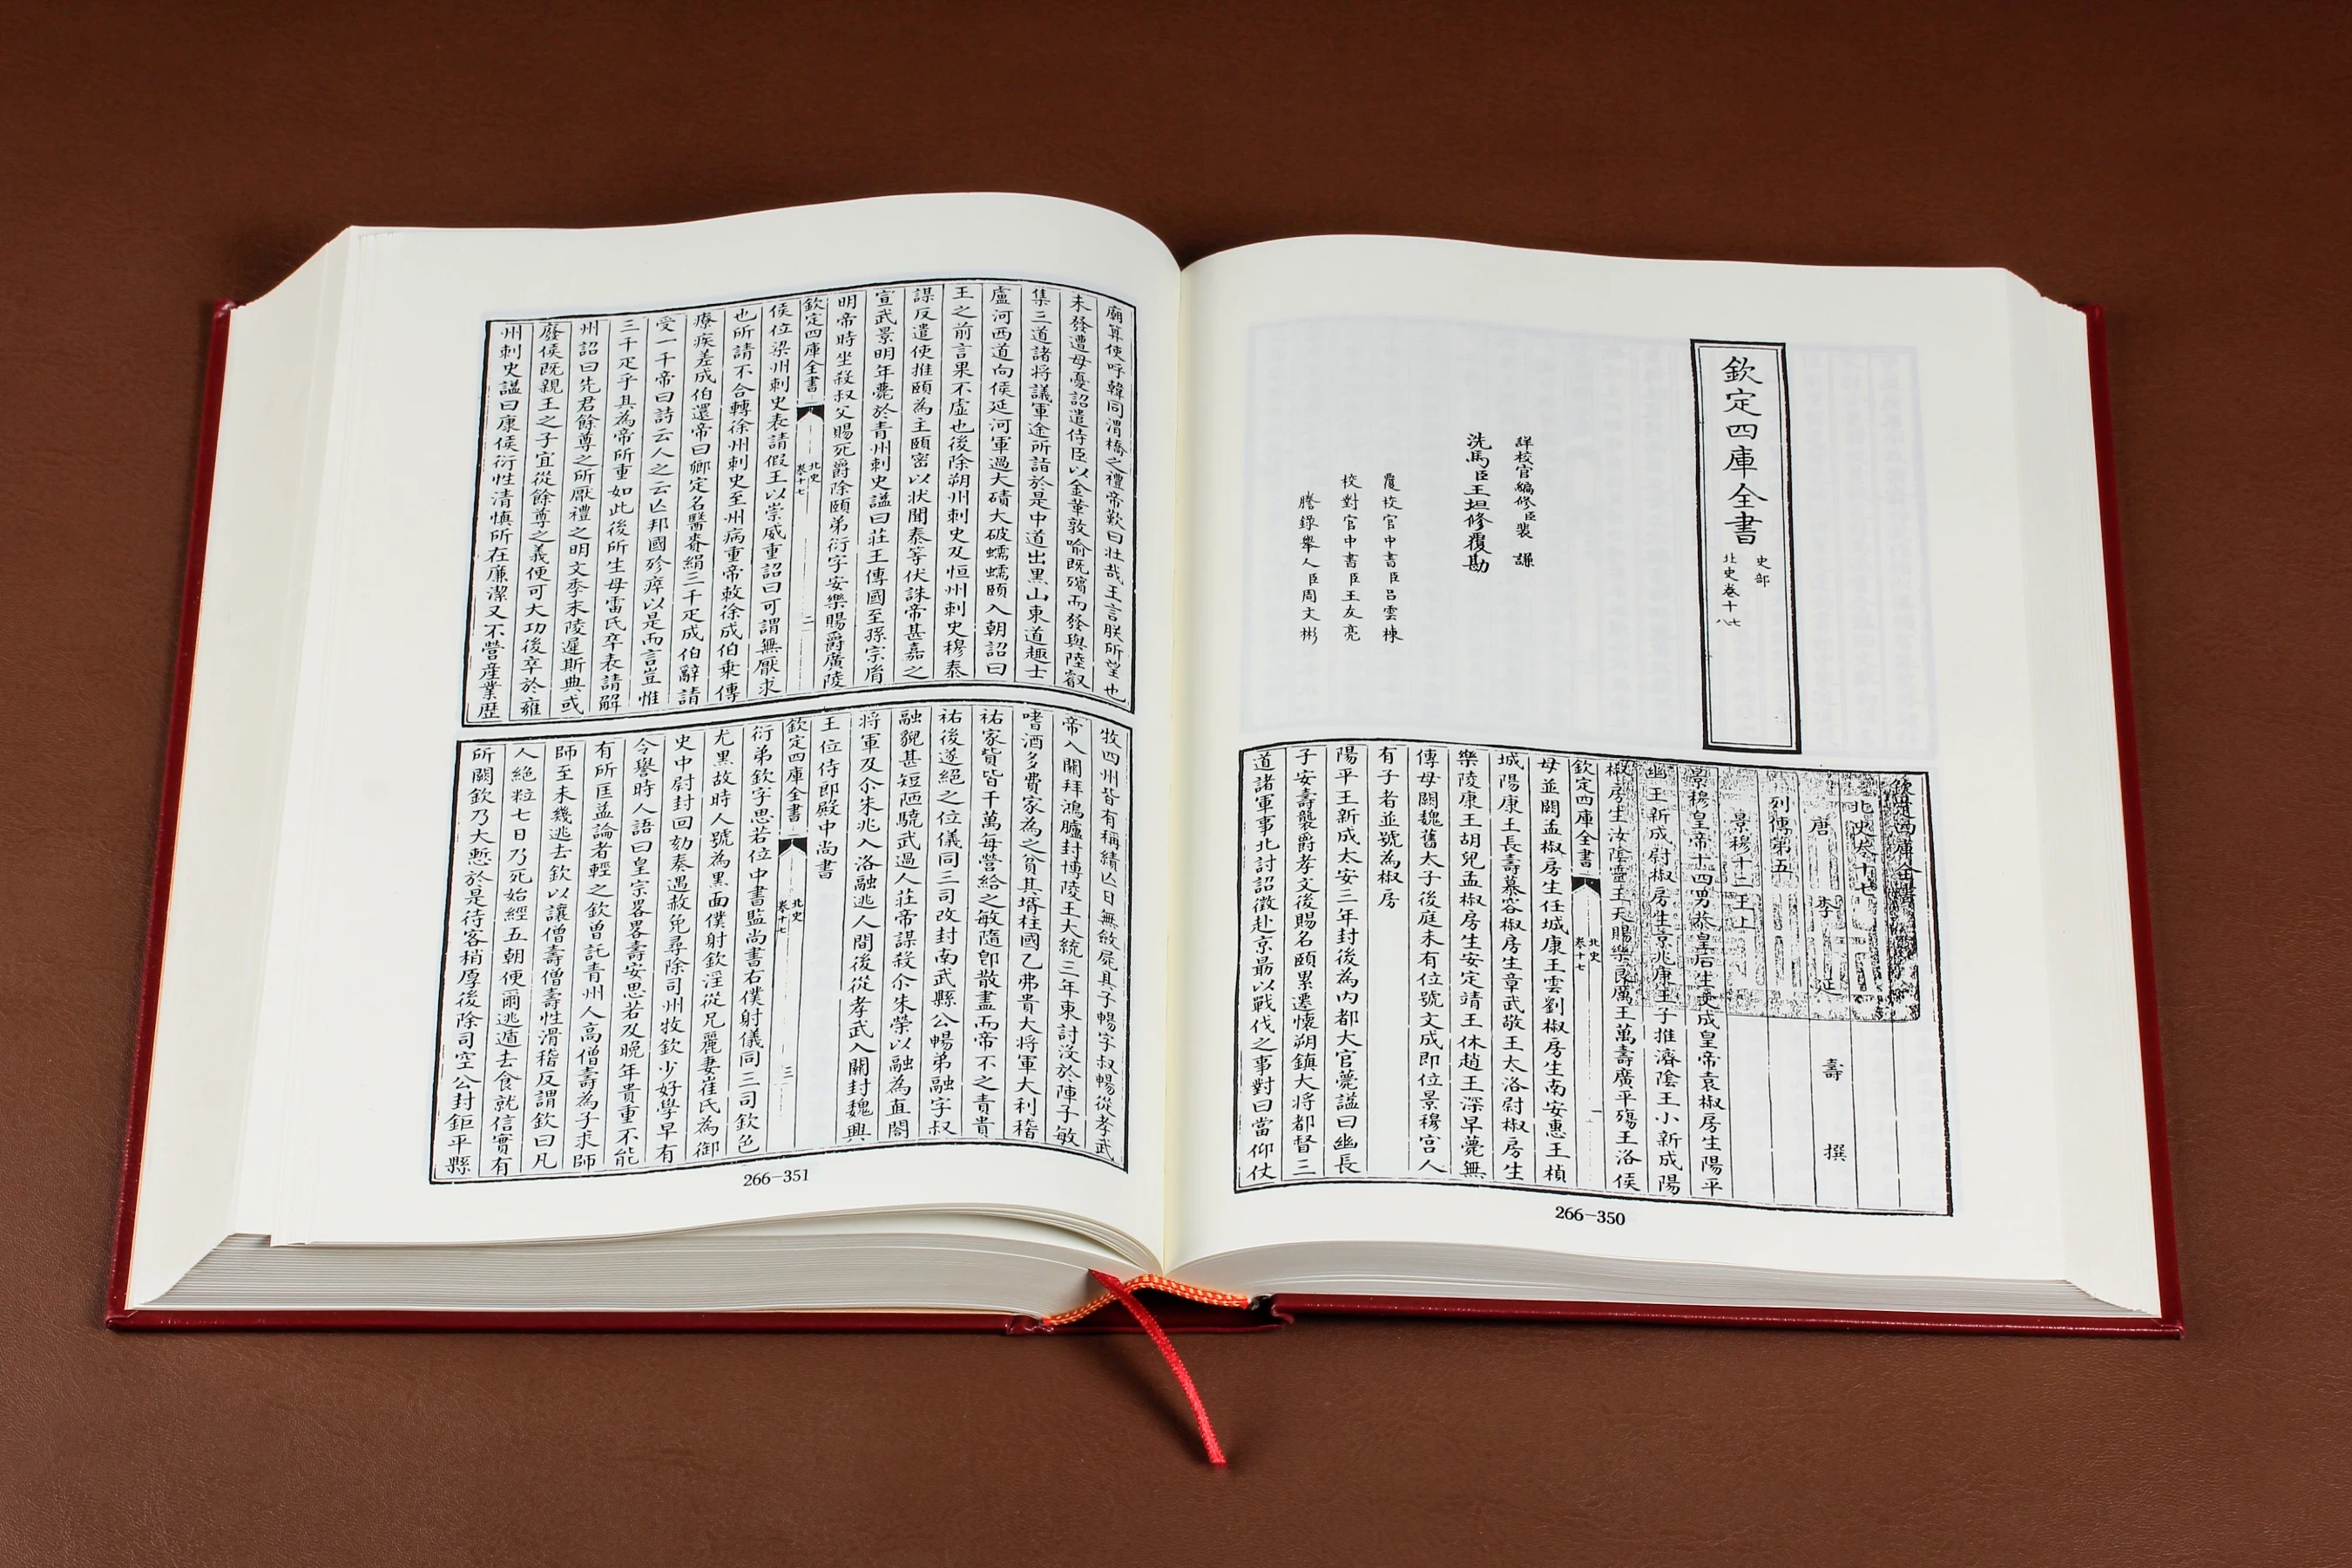 欽定四庫全書
史部
北史卷十七
八
詳校官編修臣裴謙
洗馬臣王坦修覆勘
覆校官中書臣呂雲棟
校對官中書臣王友亮
謄錄舉人臣周文彬
欽定四庫全書
北史卷十七
唐 李 延 壽 撰
列傳第五
景穆十二王上
景穆皇帝十四男恭皇后生文成皇帝袁椒房生陽平
幽王新成尉椒房生京兆康王子推濟陰王小新成陽
椒房生汝陰靈王天賜樂良厲王萬壽廣平殤王洛侯
欽定四庫全書
北史
卷十七
一
母並闕孟椒房生任城康王雲劉椒房生南安惠王楨
城陽康王長壽慕容椒房生章武敬王太洛尉椒房生
樂陵康王胡兒孟椒房生安定靖王休趙王深早薨無
傳母闕魏舊太子後庭未有位號文成即位景穆宮人
有子者並號為椒房
陽平王新成太安三年封後為內都大官薨諡曰幽長
子安壽襲爵孝文後賜名頤累遷懷朔鎮大將都督三
道諸軍事北討詔徵赴京最以戰伐之事對曰當仰仗
266—350
廟算使呼韓同渭橋之禮帝歎曰壯哉王言朕所望也
未發遭母憂詔遣侍臣以金革敦喻既殯而發與陸叡
集三道諸將議軍途所詣於是中道出黑山東道趨士
盧河西道向侯延河軍過大磧大破蠕蠕頤入朝詔曰
王之前言果不虛也後除朔州刺史及恒州刺史穆泰
謀反遣使推頤為主頤密以狀聞泰等伏誅帝甚嘉之
宣武景明年薨於青州刺史諡曰莊王傳國至孫宗胤
明帝時坐殺叔父賜死爵除頤弟衍字安樂賜爵廣陵
欽定四庫全書
北史
卷十七
二
侯位梁州刺史表請假王以崇威重詔曰可謂無厭求
也所請不合轉徐州刺史至州病重帝敕徐成伯乘傳
療疾差成伯還帝曰卿定名醫賚絹三千疋成伯辭請
受一千帝曰詩云人之云亡邦國殄瘁以是而言豈惟
三千疋乎其為帝所重如此後所生母雷氏卒表請解
州詔曰先君餘尊之所厭禮之明文季末陵遲斯典或
廢侯既親王之子宜從餘尊之義便可大功後卒於雍
州刺史諡曰康侯衍性清慎所在廉潔又不營産業歷
牧四州皆有稱績亡日無斂屍具子暢字叔暢從孝武
帝入關拜鴻臚封博陵王大統三年東討沒於陣子敏
嗜酒多費家為之貧其壻柱國乙弗貴大將軍大利稽
祐家貲皆千萬每營給之敏隨即散盡而帝不之責貴
祐後遂絕之位儀同三司改封南武縣公暢弟融字叔
融貌甚短陋驍武過人莊帝謀殺尒朱榮以融為直閤
將軍及尒朱兆入洛融逃人間後從孝武入關封魏興
王位侍郎殿中尚書
欽定四庫全書
北史
卷十七
三
衍弟欽字思若位中書監尚書右僕射儀同三司欽色
尤黑故時人號為黑面僕射欽淫從兄麗妻崔氏為御
史中尉封回劾奏遇赦免尋除司州牧欽少好學早有
令譽時人語曰皇宗畧畧壽安思若及晚年貴重不能
有所匡益論者輕之欽曾託青州人高僧壽為子求師
師至未幾逃去欽以讓僧壽僧壽性滑稽反謂欽曰凡
人絕粒七日乃死始經五朝便爾逃遁去食就信實有
所闕欽乃大慙於是待客稍厚後除司空公封鉅平縣
266—351